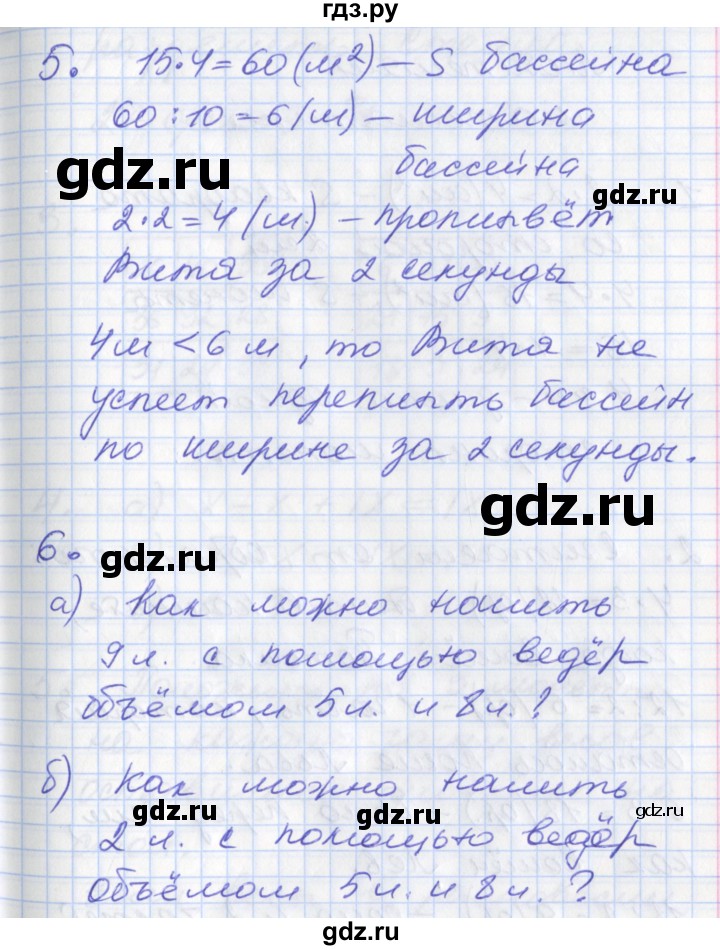 гдз.ру
5. 15·4=60(м²) – S бассейна
60:10=6(м) – ширина
бассейна
gdz.ru
gdz.ru
2·2=4(м) – проплывёт
Витя за 2 секунды
4м < 6м, то Витя не
успеет переплыть бассейн
по ширине за 2 секунды.
gdz.ru
6.
gdz.ru
а) Как можно налить
9л. с помощью ведёр
объёмом 5л. и 8л.?
б) Как можно налить
gdz.ru
gdz.ru
2 л. с помощью ведёр
объёмом 5л. и 8л.?
gdz.ru